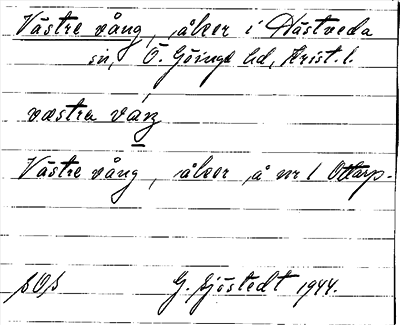 Västre vång, åker i Hästveda
sn, Ö. Göinge hd, Krist. l.
væstra váŋ
Västre vång, åker å nr 1 Ottarp.
SOS G. Sjöstedt 1944.